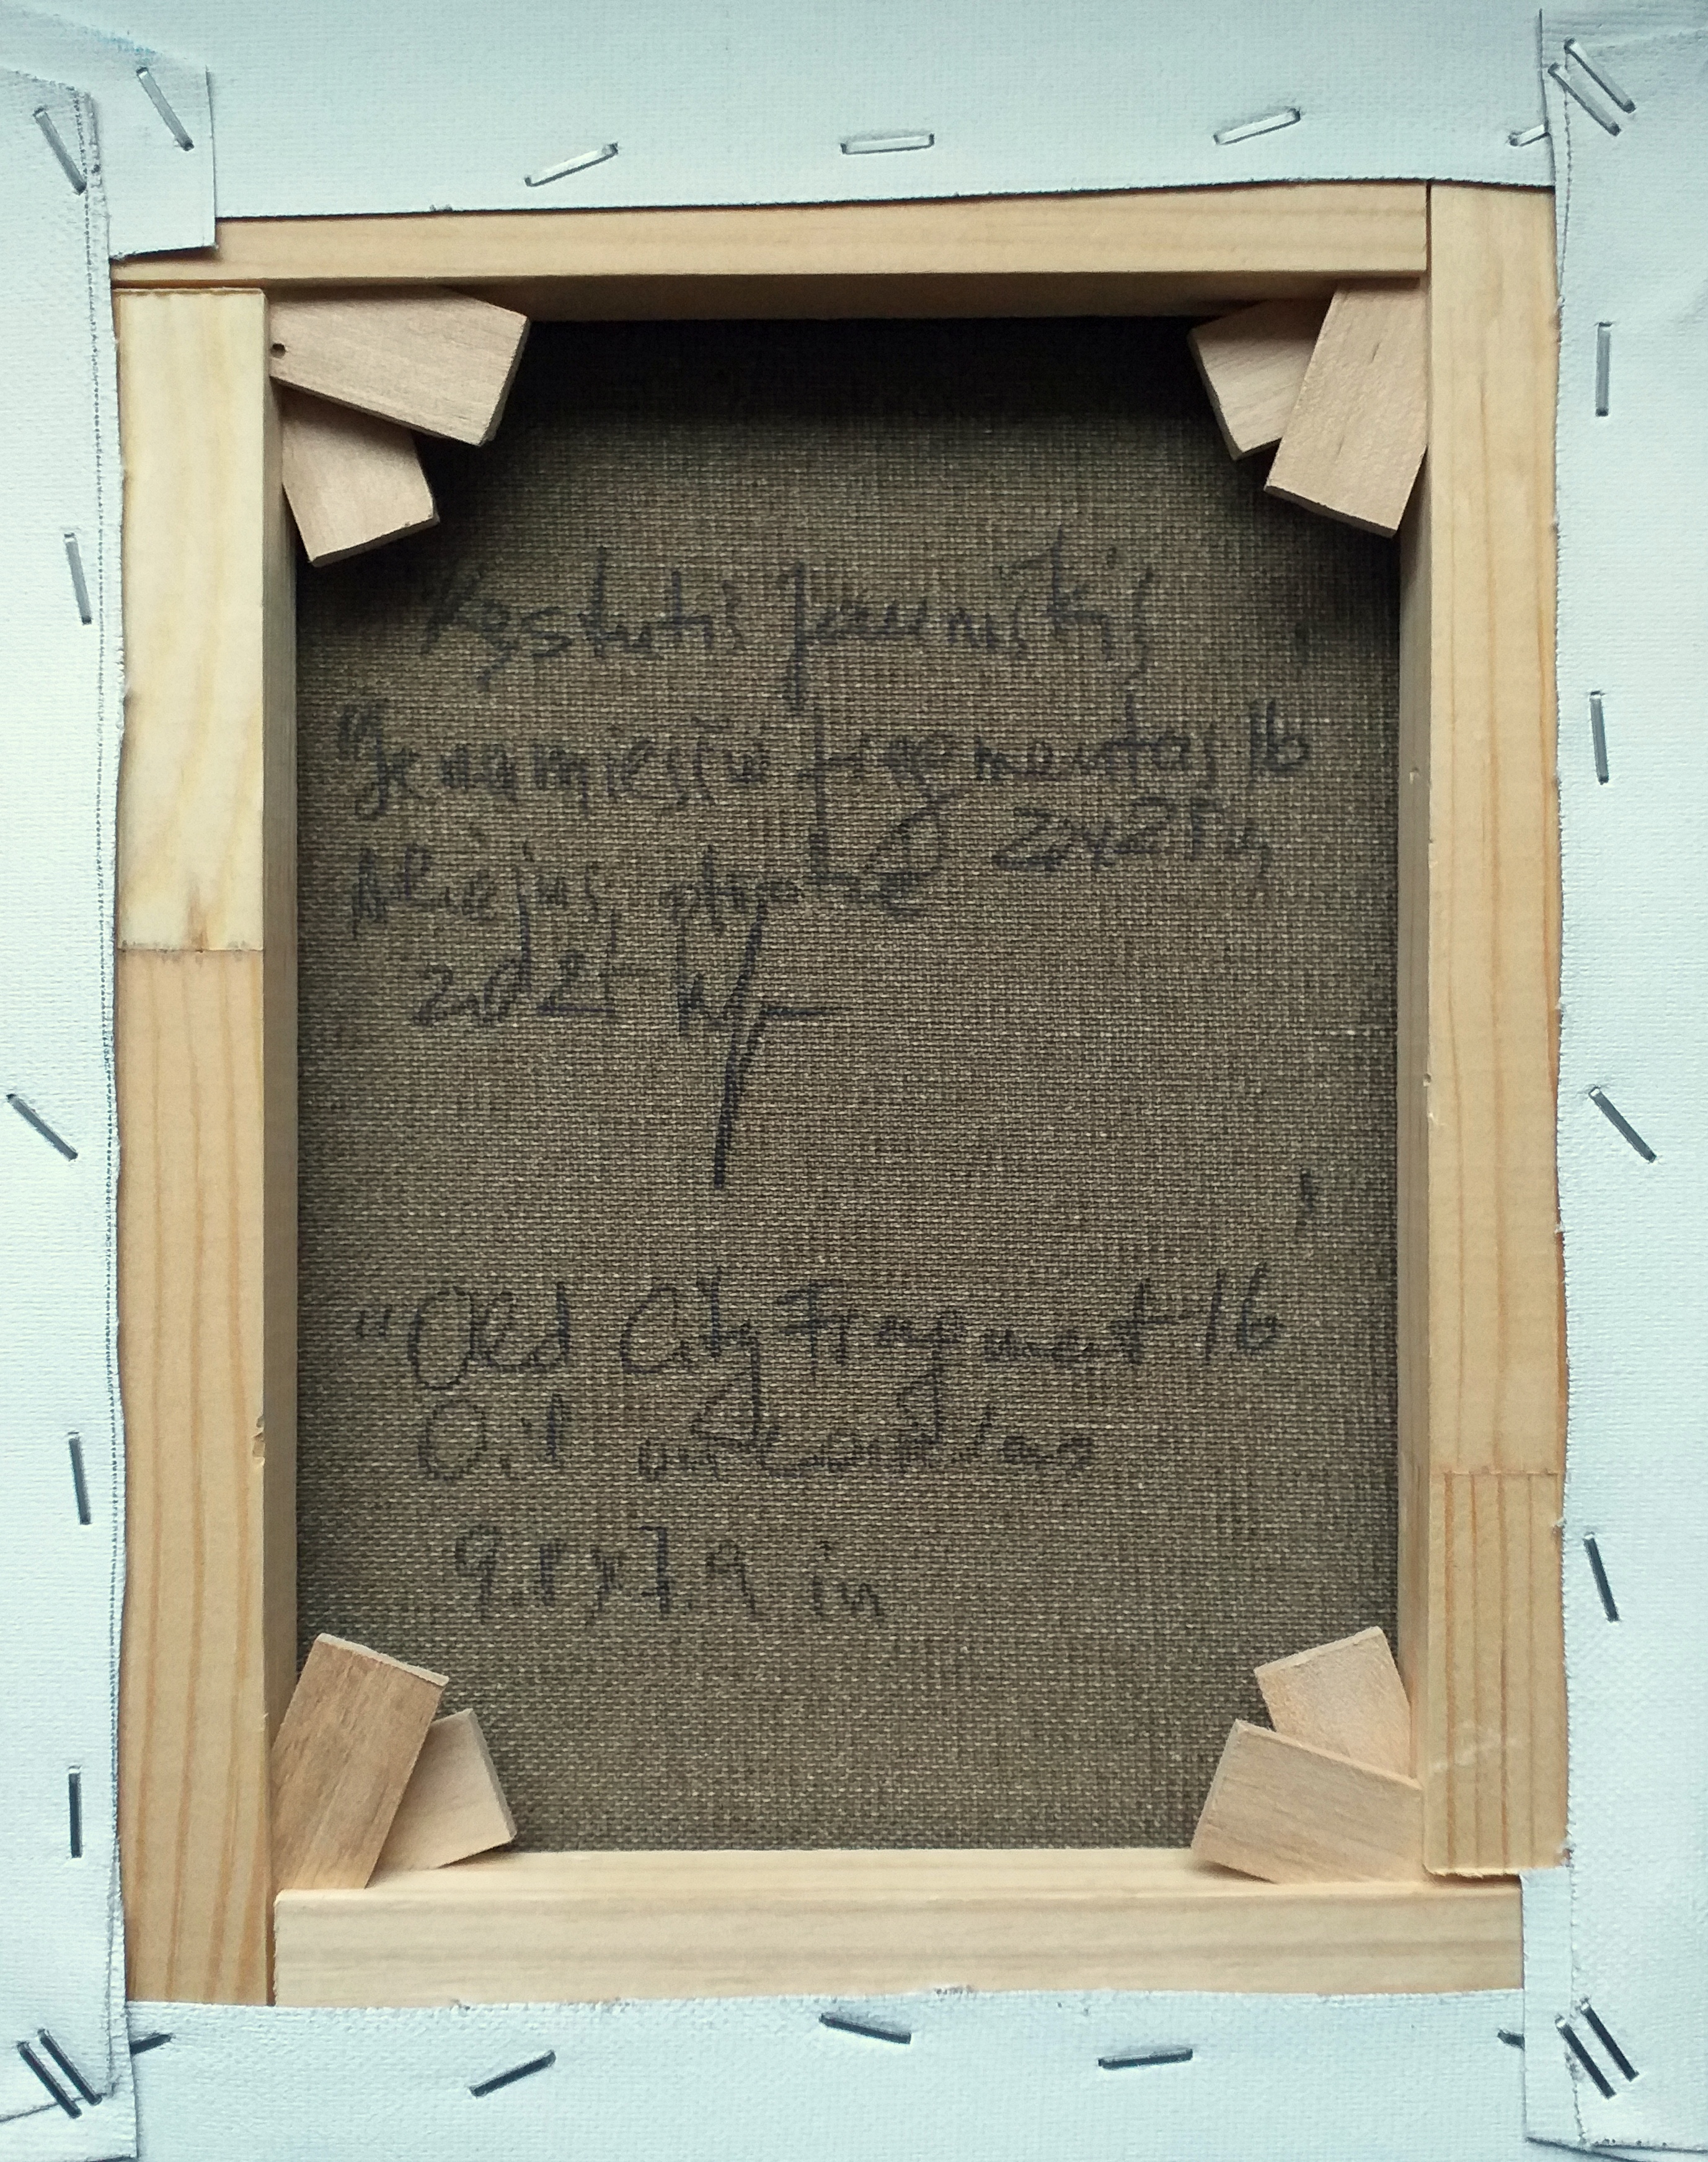 Kęstutis Jauniškis
"Senamiesčio fragmentas 16
Aliejus, drobė 20x25cm
2021
"Old City Fragment 16
Oil on Canvas
9.8x7.9 in